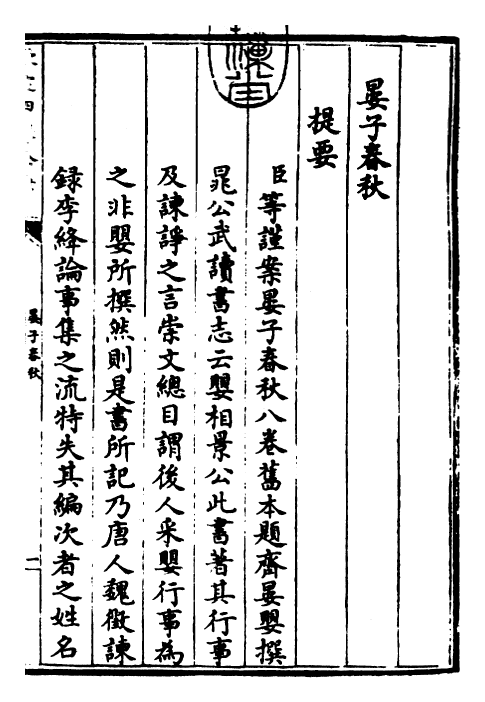 晏子春秋
提要
臣等謹案晏子春秋八卷舊本題齊晏嬰撰
晁公武讀書志云嬰相景公此書著其行事
及諫諍之言崇文總目謂後人采嬰行事為
之非嬰所撰然則是書所記乃唐人魏徵諫
録李絳論事集之流特失其編次者之姓名
晏子春秋
一